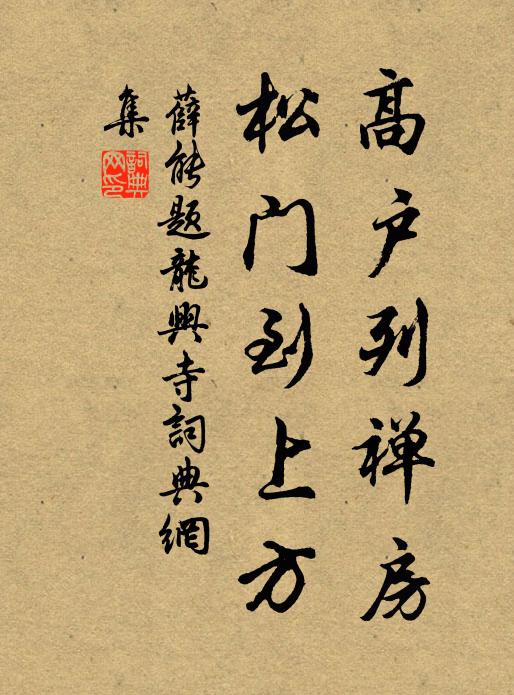 高户列禅房
松门到上方
薛能题龍興寺詞典網
集
詞典网印